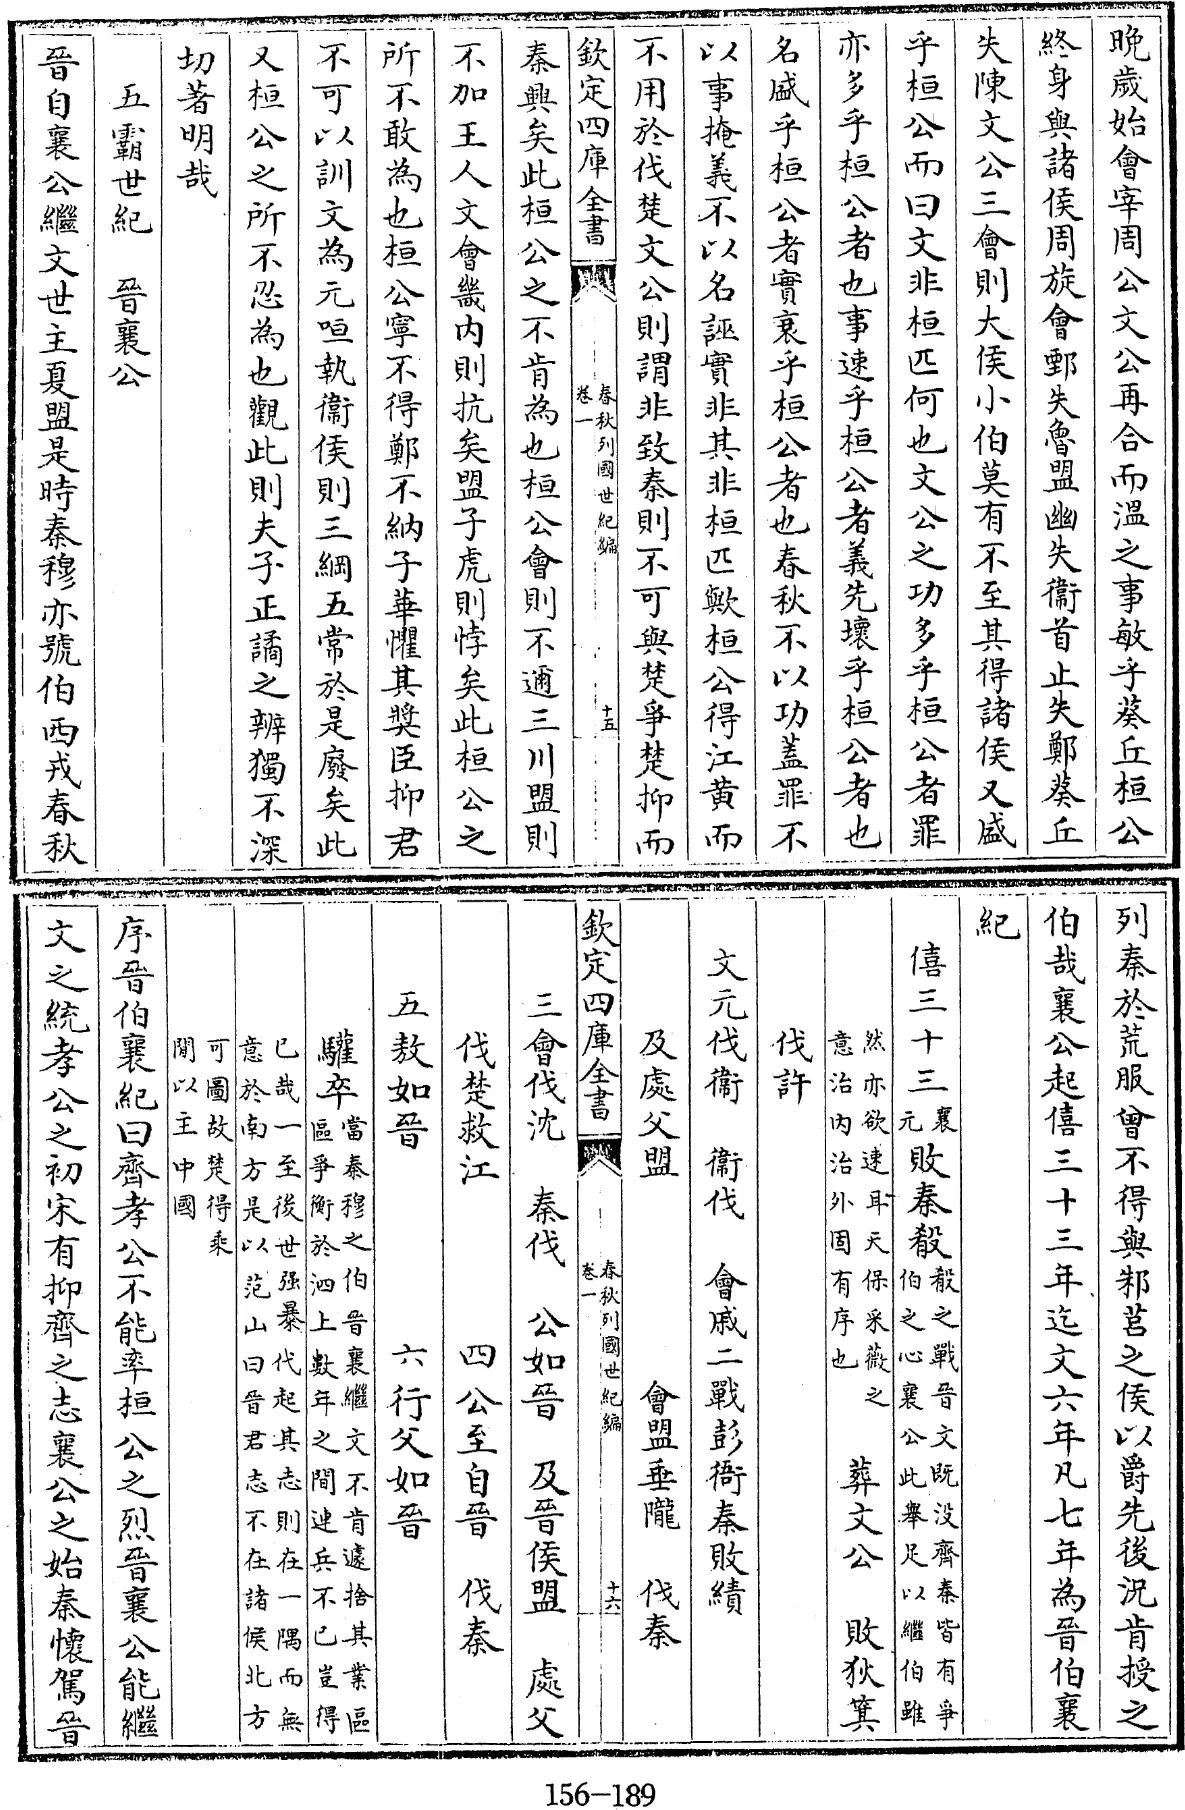 晚歲始會宰周公文公再合而溫之事敏乎葵丘桓公
終身與諸侯周旋會鄄失魯盟幽失衞首止失鄭葵丘
失陳文公三會則大侯小伯莫有不至其得諸侯又盛
乎桓公而曰文非桓匹何也文公之功多乎桓公者罪
亦多乎桓公者也事速乎桓公者義先壞乎桓公者也
名盛乎桓公者實衰乎桓公者也春秋不以功蓋罪不
以事掩義不以名誣實非其非桓匹歟桓公得江黄而
不用於伐楚文公則謂非致秦則不可與楚爭楚抑而
欽定四庫全書
春秋列國世紀編
卷一
十五
秦興矣此桓公之不肯為也桓公會則不邇三川盟則
不加王人文會畿内則抗矣盟子虎則悖矣此桓公之
所不敢為也桓公寧不得鄭不納子華懼其奬臣抑君
不可以訓文為元咺執衞侯則三綱五常於是廢矣此
又桓公之所不忍為也觀此則夫子正譎之辨獨不深
切著明哉
五霸世紀 晉襄公
晉自襄公繼文世主夏盟是時秦穆亦號伯西戎春秋
列秦於荒服曾不得與邾莒之侯以爵先後況肯授之
伯哉襄公起僖三十三年迄文六年凡七年為晉伯襄
紀
僖三十三襄元敗秦殽殽之戰晉文既没齊秦皆有爭伯之心襄公此舉足以繼伯雖
然亦欲速耳天保采薇之意治内治外固有序也 葬文公 敗狄箕
伐許
文元伐衞 衞伐 會戚二戰彭衙秦敗績
及處父盟 會盟垂隴 伐秦
欽定四庫全書
春秋列國世紀編
卷一
十六
三會伐沈 秦伐 公如晉 及晉侯盟 處父
伐楚救江 四公至自晉 伐秦
五敖如晉 六行父如晉
驩卒當秦穆之伯晉襄繼文不肯遽捨其業區區爭衡於泗上數年之間連兵不已豈得
已哉一至後世强暴代起其志則在一隅而無意於南方是以范山曰晉君志不在諸侯北方
可圖故楚得乘閒以主中國
序晉伯襄紀曰齊孝公不能率桓公之烈晉襄公能繼
文之統孝公之初宋有抑齊之志襄公之始秦懷駕晉
156-189